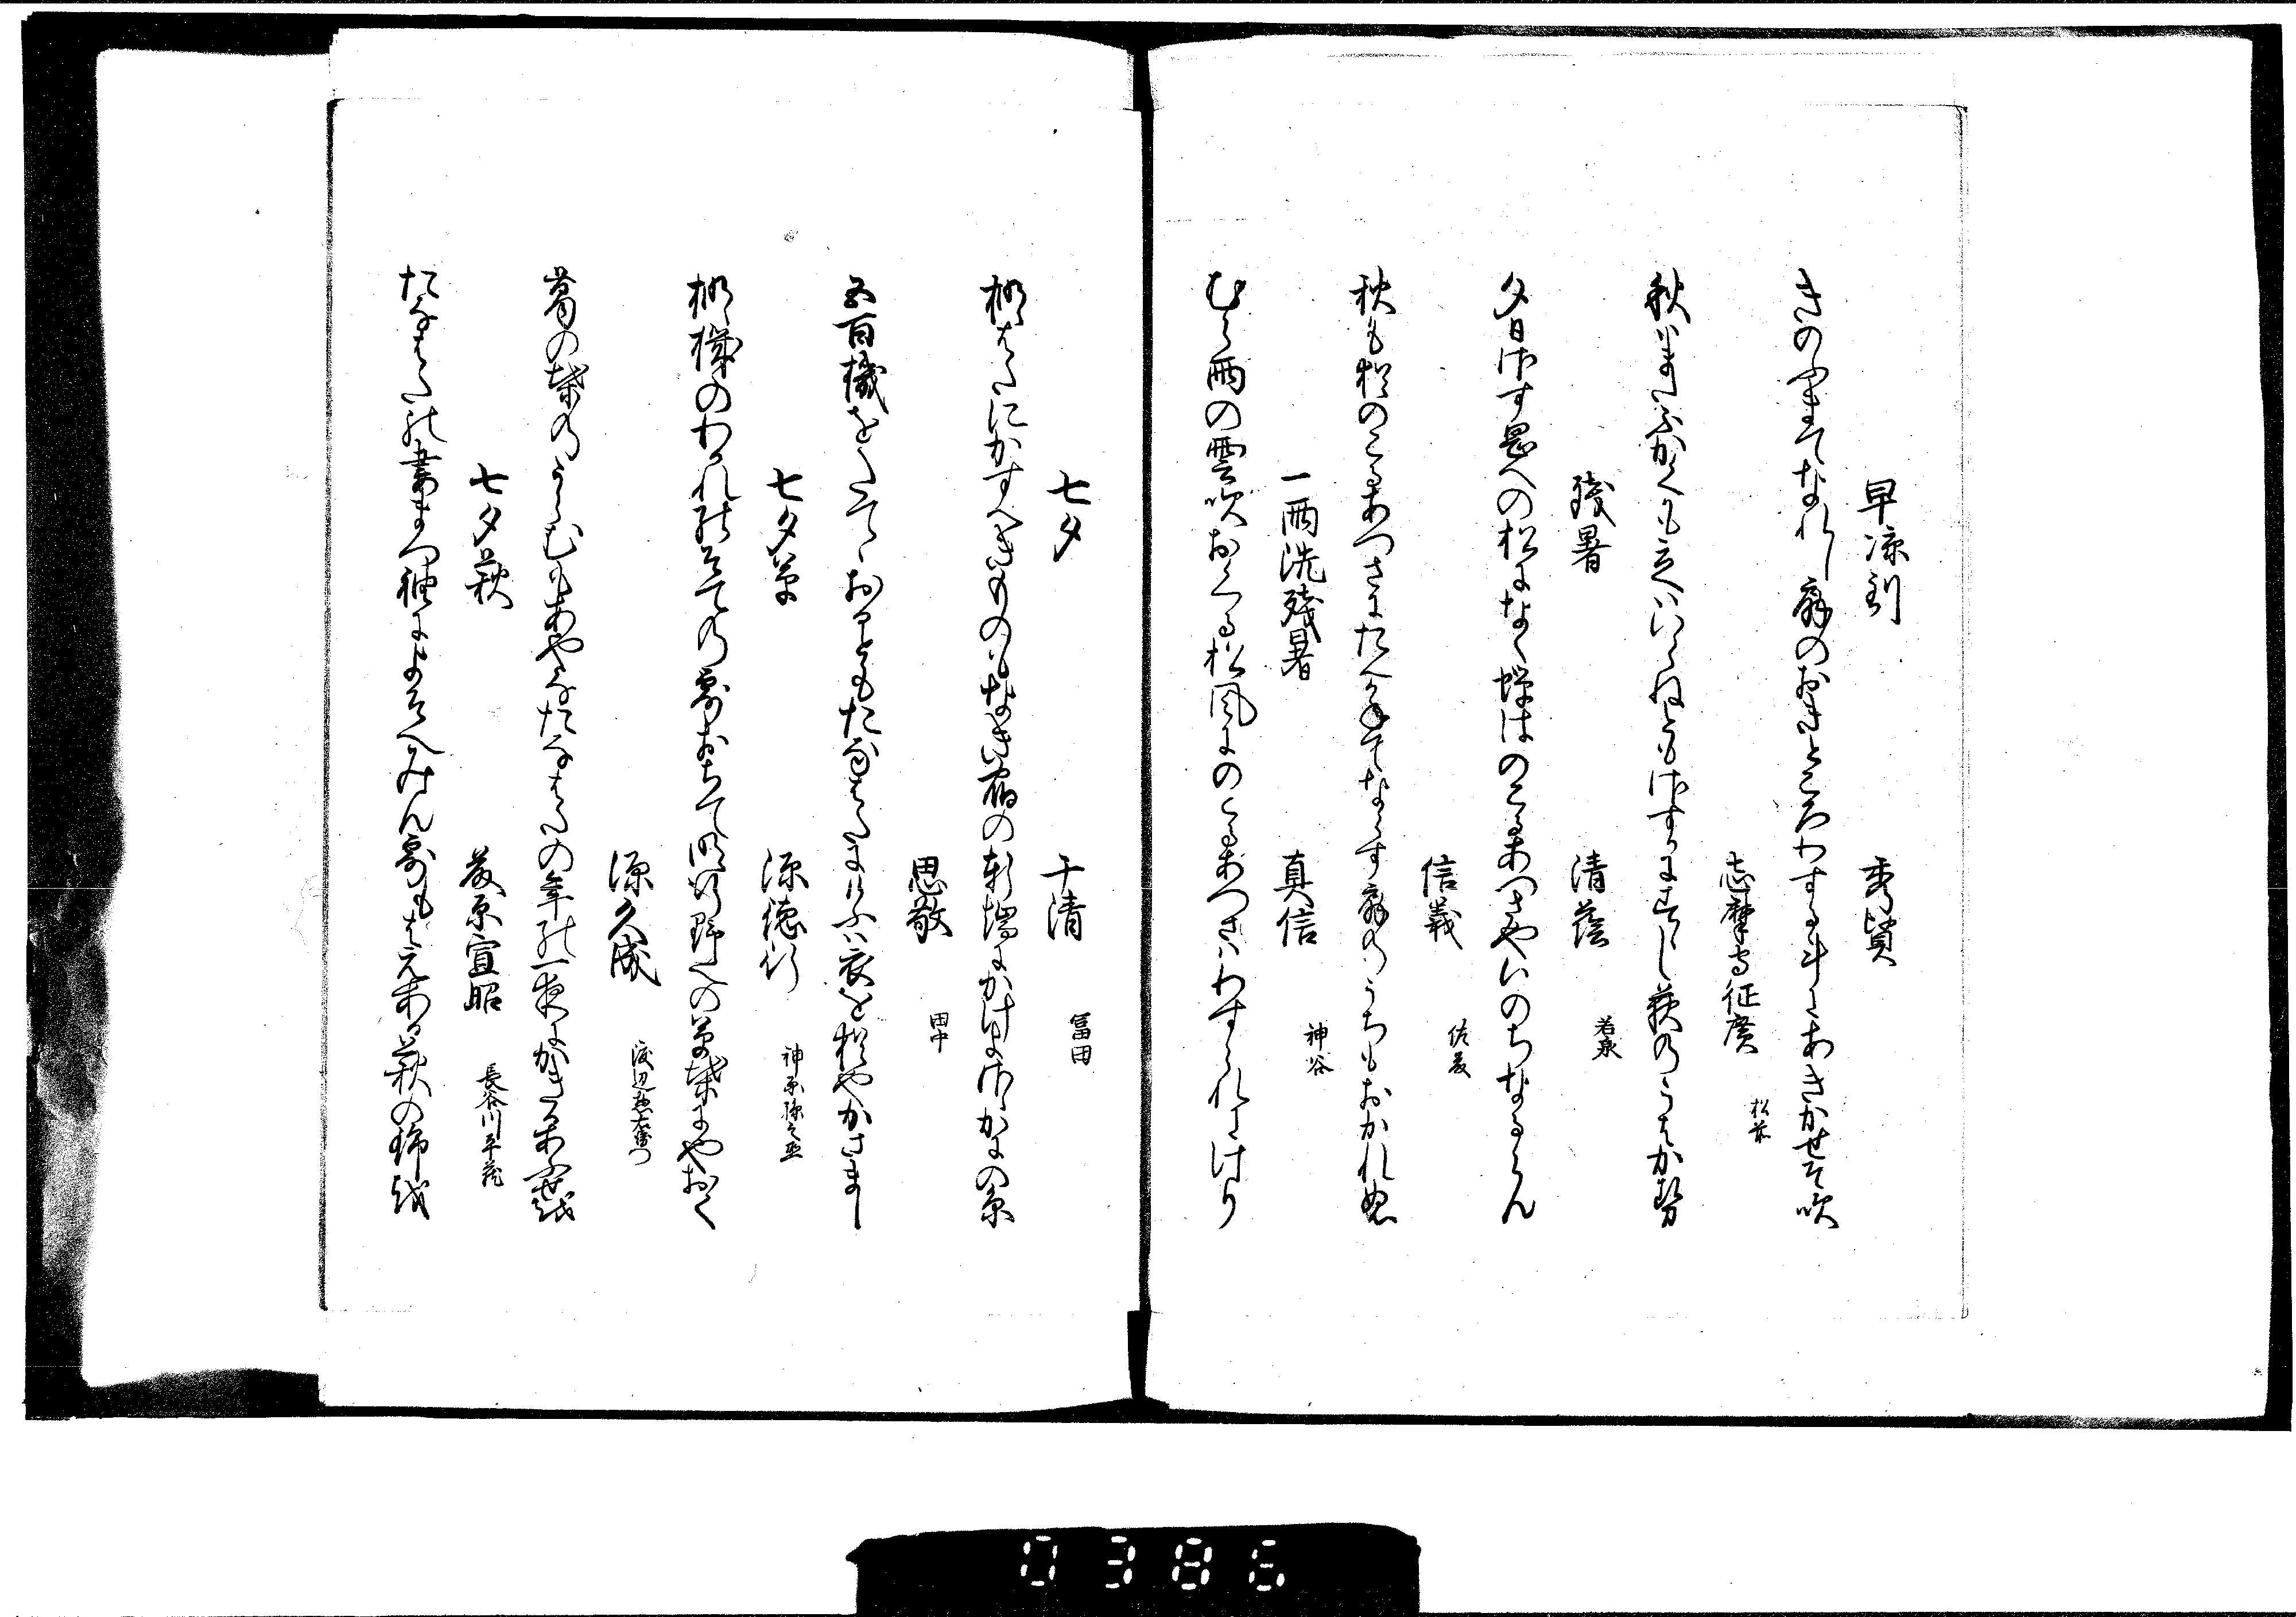 早涼到
秀賢
きのふまてなれし扇のおきところわするゝ斗にあきかせそ吹
志摩守征廣 松前
秋はまたふかくも立へいらねともけすゝしき荻のうはかせ
残暑
清蔭 若泉
夕日さす岡への松になく蝉はのこるあつさやいのちなるらん
信義 佐藤
秋も猶のこるあつさにたへかねてならす扇のうちもおかれぬ
一雨洗残暑
真信 神谷
むら雨の雲吹おくる松風にのこるあつさはわすられにけり
七夕
千清 冨田
棚はたにかすへきものもなき宿の軒端にかけよさゝかにの糸
思敬 田中
五百機をたてゝおるともたなはたにけふは衣を猶やかさまし
七夕草
源徳行 神原弥之丞
棚機のわかれのそての露おちて明行野への草葉にやおく
源久成
葛の葉のうらむもあやなたなはたの年の一夜にかきるあふせは
七夕萩
藤原宣昭 長谷川平蔵
たなはたの妻まつ袖によそへみん露もはえある萩の錦は
0386